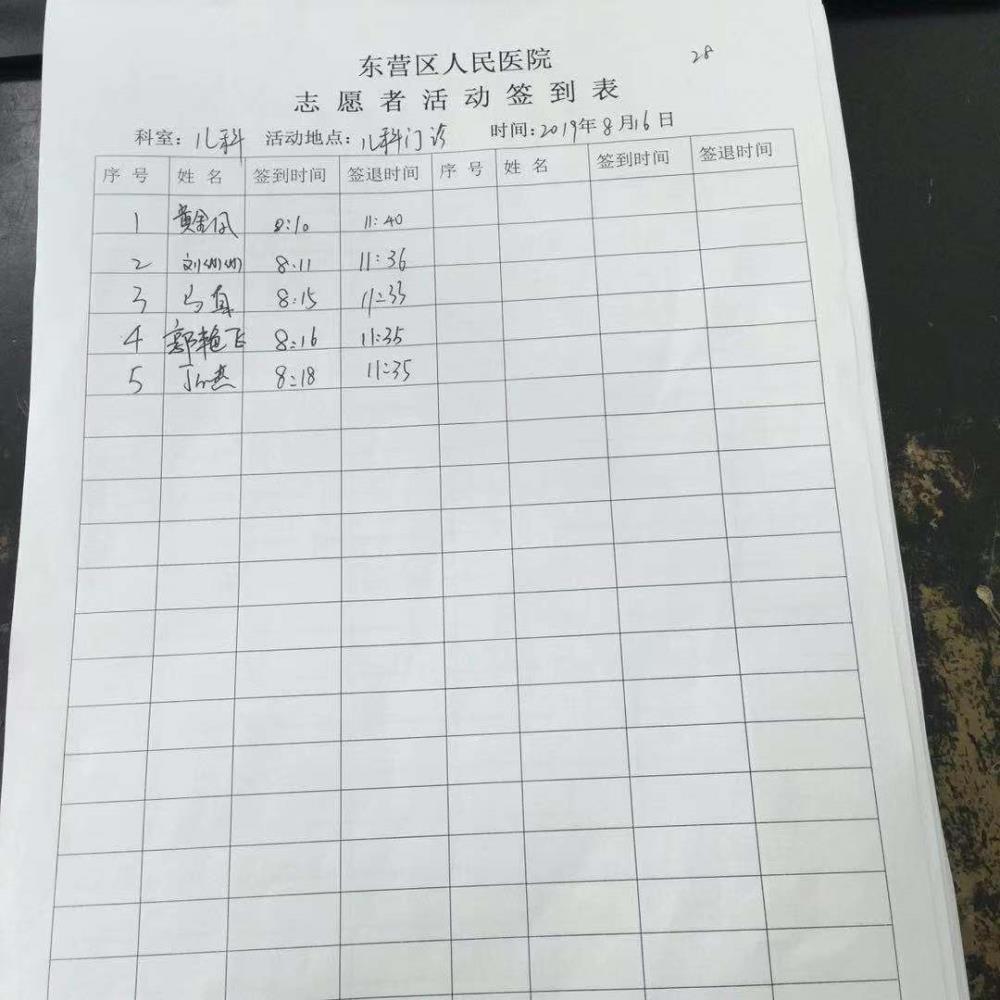 28
东营区人民医院
志愿者活动签到表
科室：儿科 活动地点：儿科门诊 时间：2019年8月16日
序号 姓名 签到时间 签退时间 序号 姓名 签到时间 签退时间
1 8:10 11:40
2 刘 8:11 11:36
3 马 8:15 11:35
4 郭艳飞 8:16 11:35
5 丁 燕 8:18 11:35